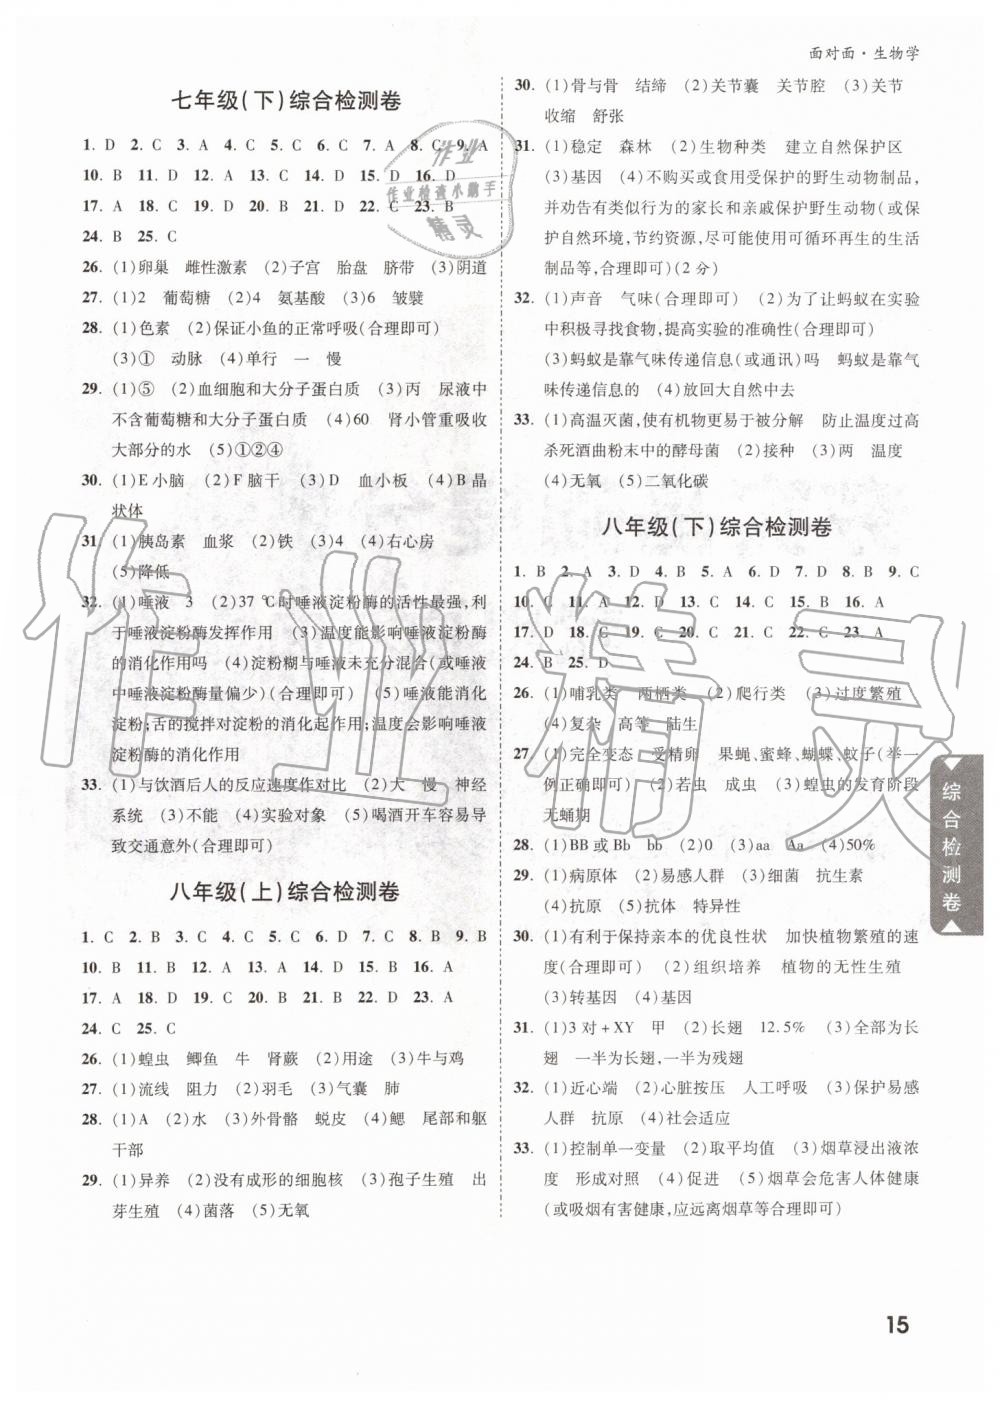 面对面·生物学
七年级(下)综合检测卷
1. D 2. C 3. A 4. C 5. C 6. C 7. A 8. C 9. A
10. B 11. D 12. A 13. C 14. A 15. D 16. D
17. A 18. C 19. C 20. B 21. D 22. C 23. B
24. B 25. C
26. (1)卵巢 雌性激素 (2)子宫 胎盘 脐带 (3)阴道
27. (1)2 葡萄糖 (2)4 氨基酸 (3)6 皱襞
28. (1)色素 (2)保证小鱼的正常呼吸(合理即可)
(3)① 动脉 (4)单行 一 慢
29. (1)⑤ (2)血细胞和大分子蛋白质 (3)丙 尿液中
不含葡萄糖和大分子蛋白质 (4)60 肾小管重吸收
大部分的水 (5)①②④
30. (1)E 小脑 (2)F 脑干 (3)D 血小板 (4)B 晶
状体
31. (1)胰岛素 血浆 (2)铁 (3)4 (4)右心房
(5)降低
32. (1)唾液 3 (2)37 ℃时唾液淀粉酶的活性最强,利
于唾液淀粉酶发挥作用 (3)温度能影响唾液淀粉酶
的消化作用吗 (4)淀粉糊与唾液未充分混合(或唾液
中唾液淀粉酶量偏少)(合理即可) (5)唾液能消化
淀粉;舌的搅拌对淀粉的消化起作用;温度会影响唾液
淀粉酶的消化作用
33. (1)与饮酒后人的反应速度作对比 (2)大 慢 神经
系统 (3)不能 (4)实验对象 (5)喝酒开车容易导
致交通意外(合理即可)
八年级(上)综合检测卷
1. C 2. B 3. C 4. C 5. C 6. D 7. B 8. B 9. B
10. B 11. A 12. D 13. A 14. D 15. B 16. A
17. A 18. D 19. C 20. B 21. A 22. D 23. A
24. C 25. C
26. (1)蝗虫 鲫鱼 牛 肾蕨 (2)用途 (3)牛与鸡
27. (1)流线 阻力 (2)羽毛 (3)气囊 肺
28. (1)A (2)水 (3)外骨骼 蜕皮 (4)鳃 尾部和躯
干部
29. (1)异养 (2)没有成形的细胞核 (3)孢子生殖 出
芽生殖 (4)菌落 (5)无氧
30. (1)骨与骨 结缔 (2)关节囊 关节腔 (3)关节
收缩 舒张
31. (1)稳定 森林 (2)生物种类 建立自然保护区
(3)基因 (4)不购买或食用受保护的野生动物制品,
并劝告有类似行为的家长和亲戚保护野生动物(或保
护自然环境,节约资源,尽可能使用可循环再生的生活
制品等,合理即可)(2分)
32. (1)声音 气味(合理即可) (2)为了让蚂蚁在实验
中积极寻找食物,提高实验的准确性(合理即可)
(3)蚂蚁是靠气味传递信息(或通讯)吗 蚂蚁是靠气
味传递信息的 (4)放回大自然中去
33. (1)高温灭菌,使有机物更易于被分解 防止温度过高
杀死酒曲粉末中的酵母菌 (2)接种 (3)两 温度
(4)无氧 (5)二氧化碳
八年级(下)综合检测卷
1. B 2. A 3. D 4. B 5. A 6. D 7. D 8. B 9. C
10. C 11. A 12. D 13. C 14. C 15. B 16. A
17. D 18. C 19. C 20. C 21. C 22. C 23. A
24. B 25. D
26. (1)哺乳类 两栖类 (2)爬行类 (3)过度繁殖
(4)复杂 高等 陆生
27. (1)完全变态 受精卵 果蝇、蜜蜂、蝴蝶、蚊子(举一
例正确即可) (2)若虫 成虫 (3)蝗虫的发育阶段
无蛹期
28. (1)BB 或 Bb bb (2)0 (3)aa Aa (4)50%
29. (1)病原体 (2)易感人群 (3)细菌 抗生素
(4)抗原 (5)抗体 特异性
30. (1)有利于保持亲本的优良性状 加快植物繁殖的速
度(合理即可) (2)组织培养 植物的无性生殖
(3)转基因 (4)基因
31. (1)3 对+XY 甲 (2)长翅 12.5% (3)全部为长
翅 一半为长翅,一半为残翅
32. (1)近心端 (2)心脏按压 人工呼吸 (3)保护易感
人群 抗原 (4)社会适应
33. (1)控制单一变量 (2)取平均值 (3)烟草浸出液浓
度 形成对照 (4)促进 (5)烟草会危害人体健康
(或吸烟有害健康,应远离烟草等合理即可)
综合检测卷
15
作业
作业检查小助手
精灵
作业精灵